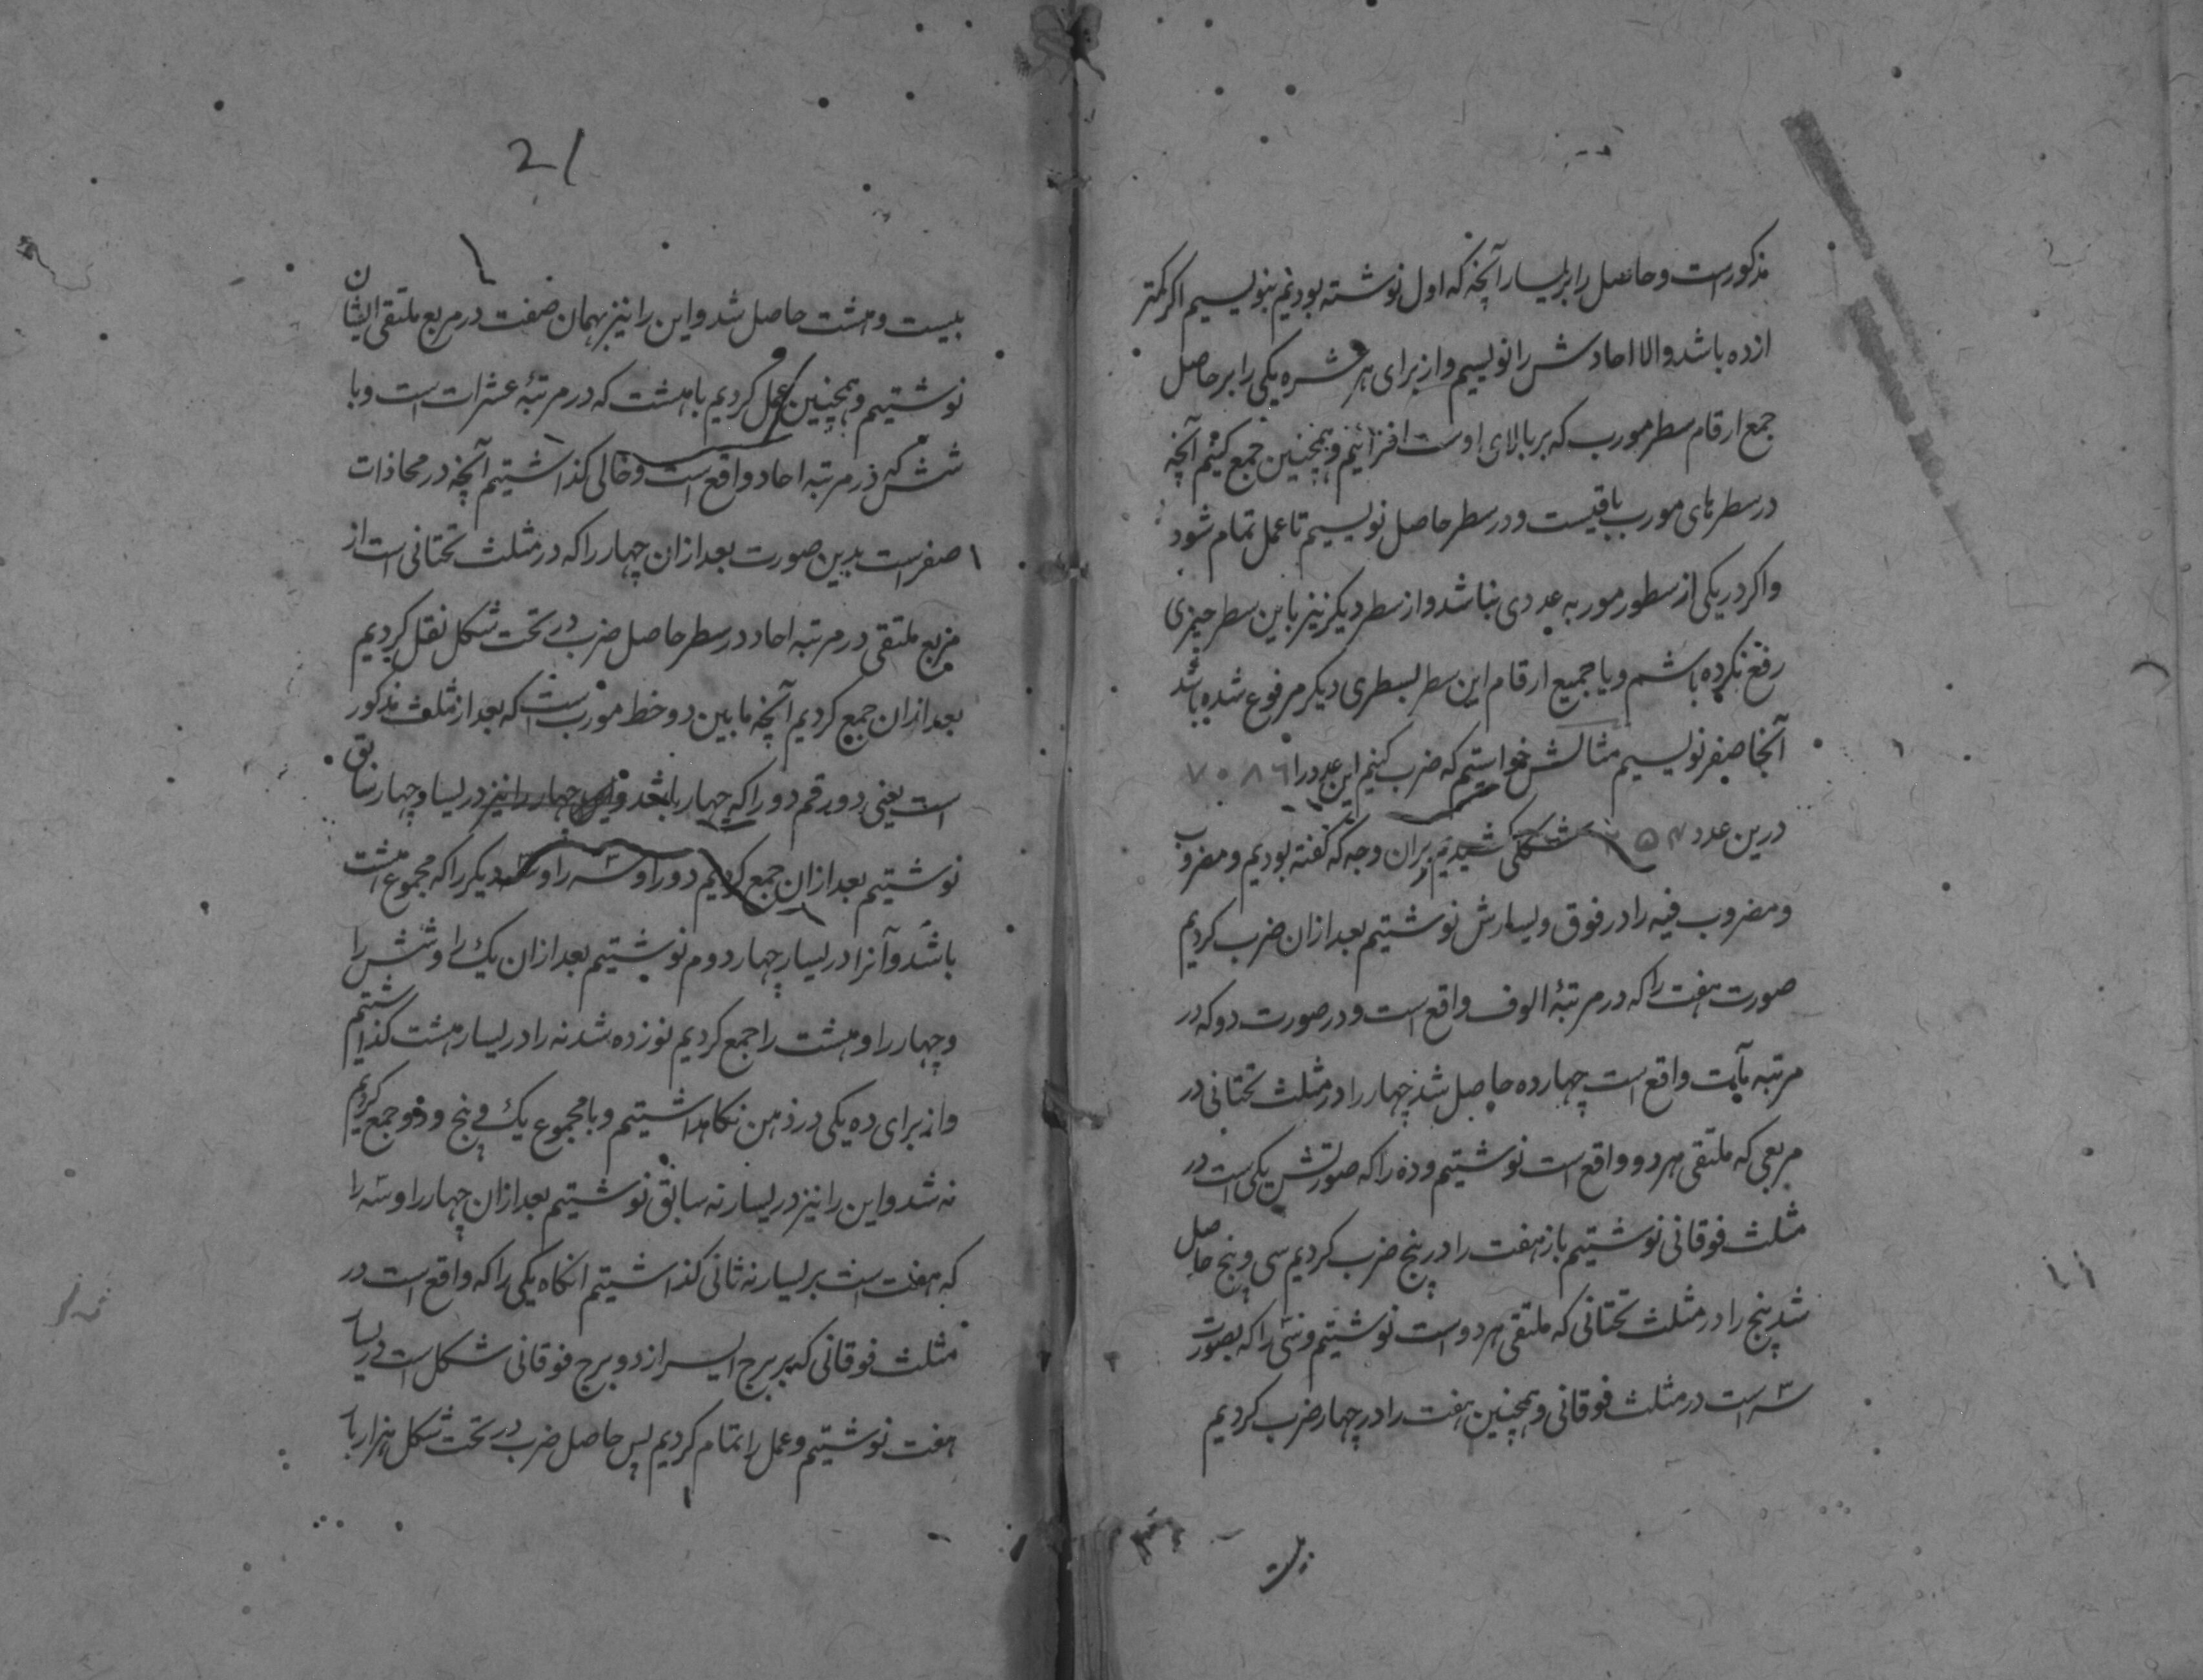 مذکورست و حاصل را بریسار آنچه که اول نوشته بودیم بنویسیم اکر کمتر
ازده باشد والا احادش را نویسیم و از برای هر عشره یکی را بر حاصل
جمع ارقام سطر مورب که بر بالای اوست افزائیم و همچنین جمع کنیم آنچه
در سطرهای مورب باقیست و در سطر حاصل نویسیم تا عمل تمام شود
واکر در یکی از سطور موربه عددی نباشد و از سطر دیکر نیز باین سطر چیزی
رفع نکرده باشیم و یا جمیع ارقام این سطر بسطری دیکر مرفوع شده باشد
آنجا صفر نویسیم مثالش خواستیم که ضرب کنیم این عدد را ۷۰۸۶
درین عدد ۲۵۴ شکلی کشیدیم بران وجه که کفته بودیم و مضروب
و مضروب فیه را در فوق و یسارش نوشتیم بعد ازان ضرب کردیم
صورت هفت را که در مرتبۀ الوف واقع است و در صورت دو که در
مرتبه مآیت واقع است چهارده حاصل شد چهار را در مثلث تحتانی در
مربعی که ملتقی هر دو واقع است نوشتیم و ده را که صورتش یکی است در
مثلث فوقانی نوشتیم باز هفت را در پنج ضرب کردیم سی و پنج حاصل
شد پنج را در مثلث تحتانی که ملتقی هر دو است نوشتیم و سی را که بصورت
سه است در مثلث فوقانی و همچنین هفت را در چهار ضرب کردیم
بیست
21
بیست و هشت حاصل شد و این را نیز بهمان صفت در مربع ملتقی ایشان
نوشتیم و همچنین عمل کردیم با هشت که در مرتبۀ عشرات است و با
شش که در مرتبه احاد واقع است و خالی کذاشتیم آنچه در محاذات
صفر است بدین صورت بعد ازان چهار را که در مثلث تحتانی است از
مربع ملتقی در مرتبه احاد در سطر حاصل ضرب در تحت شکل نقل کردیم
بعد ازان جمع کردیم آنچه مابین دو خط مورب است که بعد از مثلث مذکور
است یعنی دو رقم دو را که چهار باشد و این چهار را نیز در یسار چهار سابق
نوشتیم بعد ازان جمع کردیم دو را و سه را و سه دیکر را که مجموع هشت
باشد و آنرا در یسار چهار دوم نوشتیم بعد ازان یک را و شش را
و چهار را و هشت را جمع کردیم نوزده شد نه را در یسار هشت کذاشتیم
و از برای ده یکی در ذهن نکاهداشتیم و با مجموع یک و پنج و دو جمع کردیم
نه شد و این را نیز در یسار نه سابق نوشتیم بعد ازان چهار را و سه را
که هفت است بر یسار نه ثانی کذاشتیم انکاه یکی را که واقع است در
مثلث فوقانی که بر برج ایسر از دو برج فوقانی شکل است در یسار
هفت نوشتیم و عمل را تمام کردیم پس حاصل ضرب در تحت شکل هزار بار